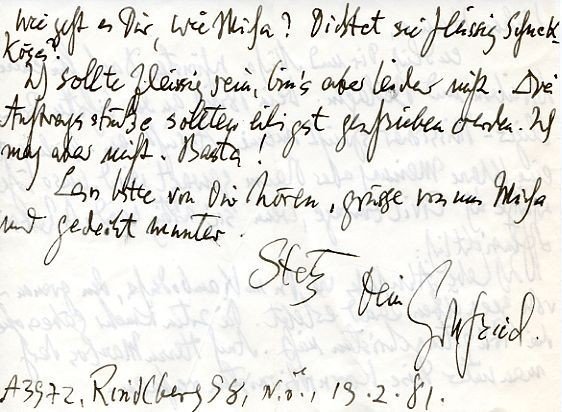 Wie geht es Dir, wie Misa? Dichtet sie fleissig Schneck-
Ich sollte fleissig sein, bin's aber leider nicht. Drei
Auftragsstücke sollten eiligst geschrieben werden. Ich
mag aber nicht. Basta!
Lass bitte von Dir hören, grüsse von uns Misa
und gedeiht munter.
Stets
Dein
Gottfried.
A3972, Rindlberg 98, N.Ö., 19.2.81.